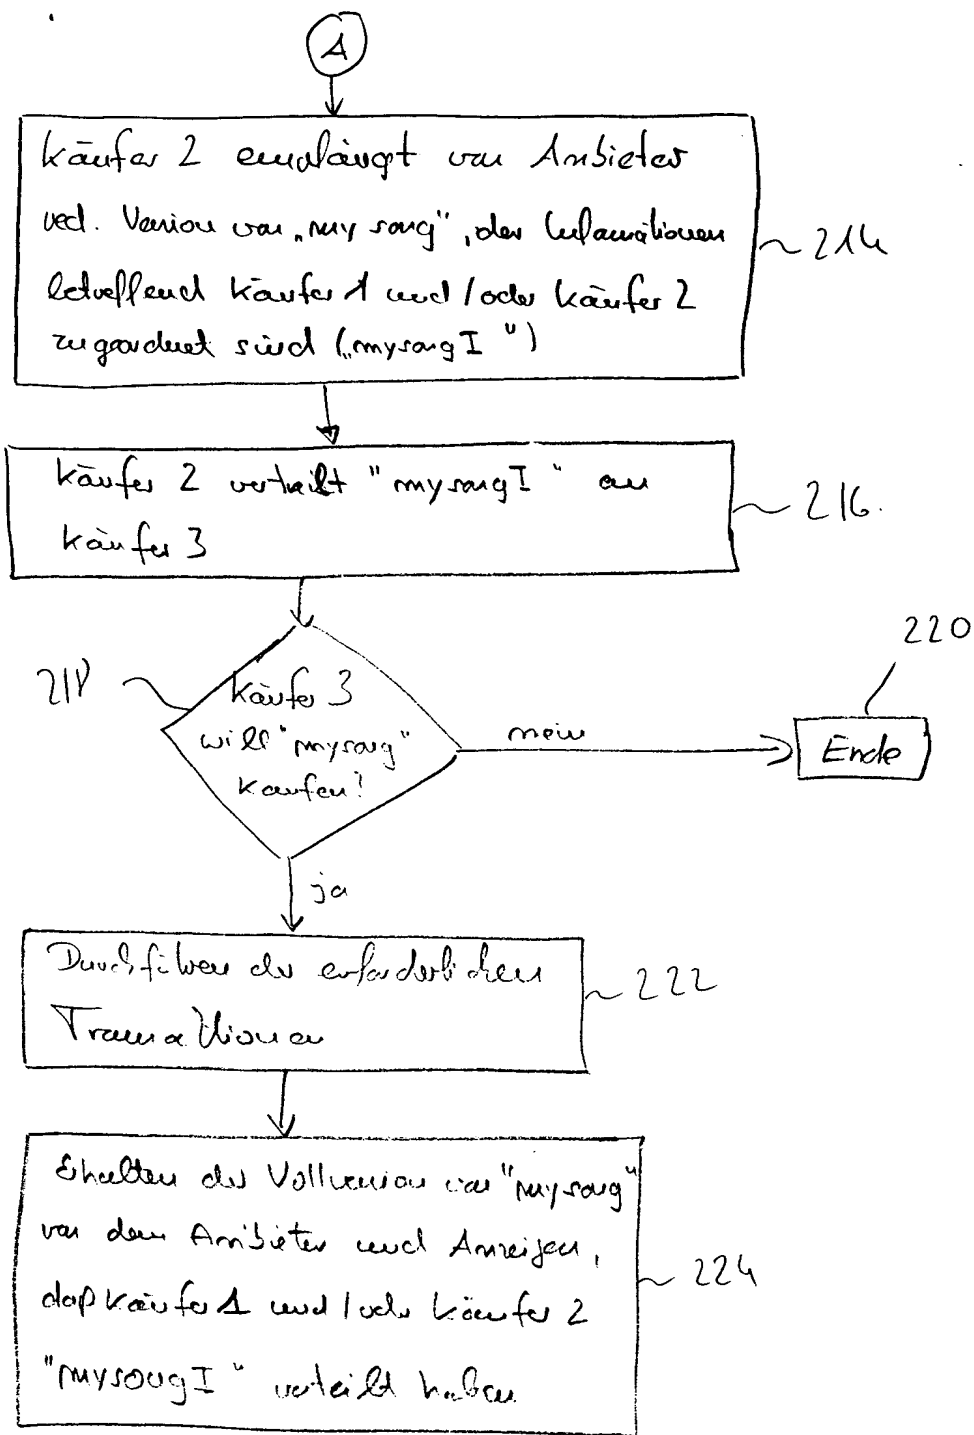 A
Käufer 2 empfängt von Anbieter
red. Version von „my song", der Informationen
betreffend Käufer 1 und/oder Käufer 2
zugeordnet sind („mysong I")
214
Käufer 2 verteilt "mysong I" an
Käufer 3
216
218
Käufer 3
will "mysong"
kaufen?
nein
220
Ende
ja
Durchführen der erforderlichen
Transaktionen
222
Erhalten der Vollversion von "mysong"
von dem Anbieter und Anzeigen,
daß Käufer 1 und/oder Käufer 2
"mysong I" verteilt haben
224